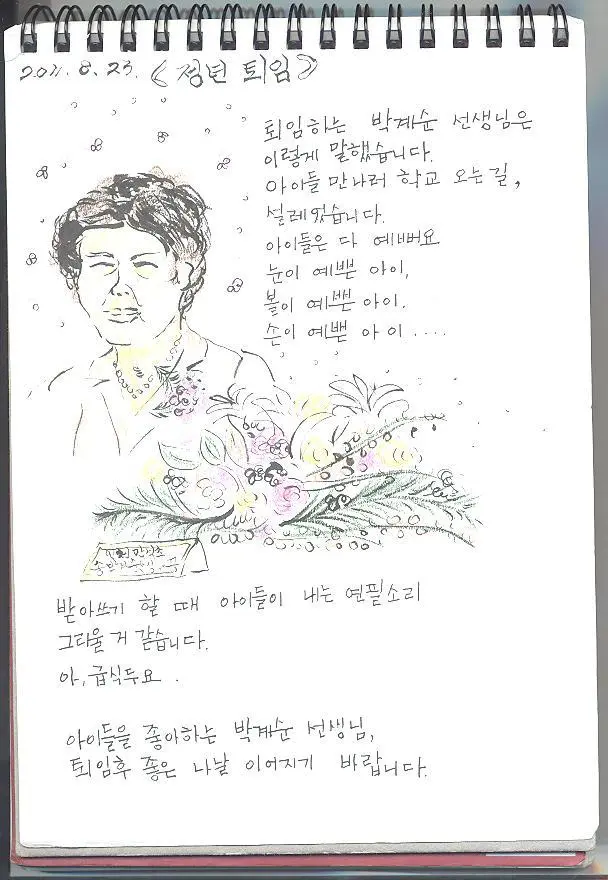 2011. 8. 23. 《정년 퇴임》
퇴임하는 박계순 선생님은
이렇게 말했습니다.
아이들 만나러 학교 오는 길,
설레었습니다.
아이들은 다 예뻐요
눈이 예쁜 아이,
볼이 예쁜 아이.
손이 예쁜 아이 ....
받아쓰기 할 때 아이들이 내는 연필소리
그리울 거 같습니다.
아, 급식두요.
아이들을 좋아하는 박계순 선생님,
퇴임후 좋은 나날 이어지기 바랍니다.